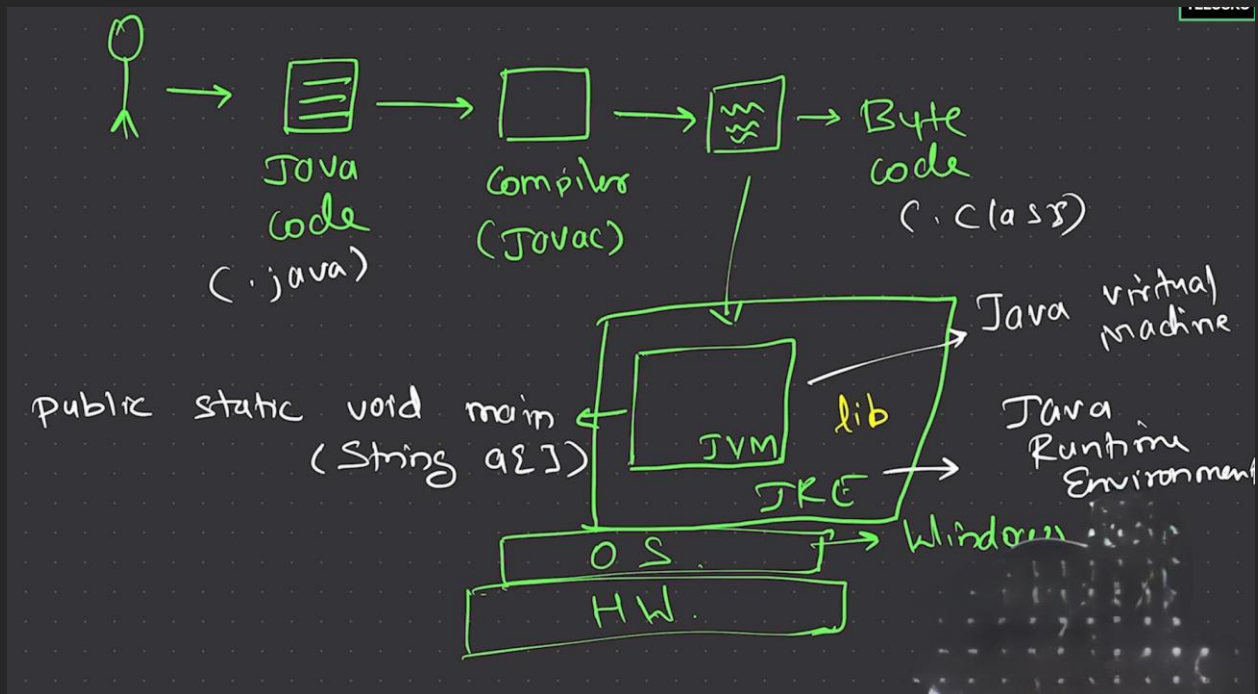 Java
code
(.java)
Compiler
(Javac)
Byte
code
(.class)
Java virtual
machine
public static void main
(String a[])
JVM
lib
JRE
Java
Runtime
Environment
OS.
Windows
HW.